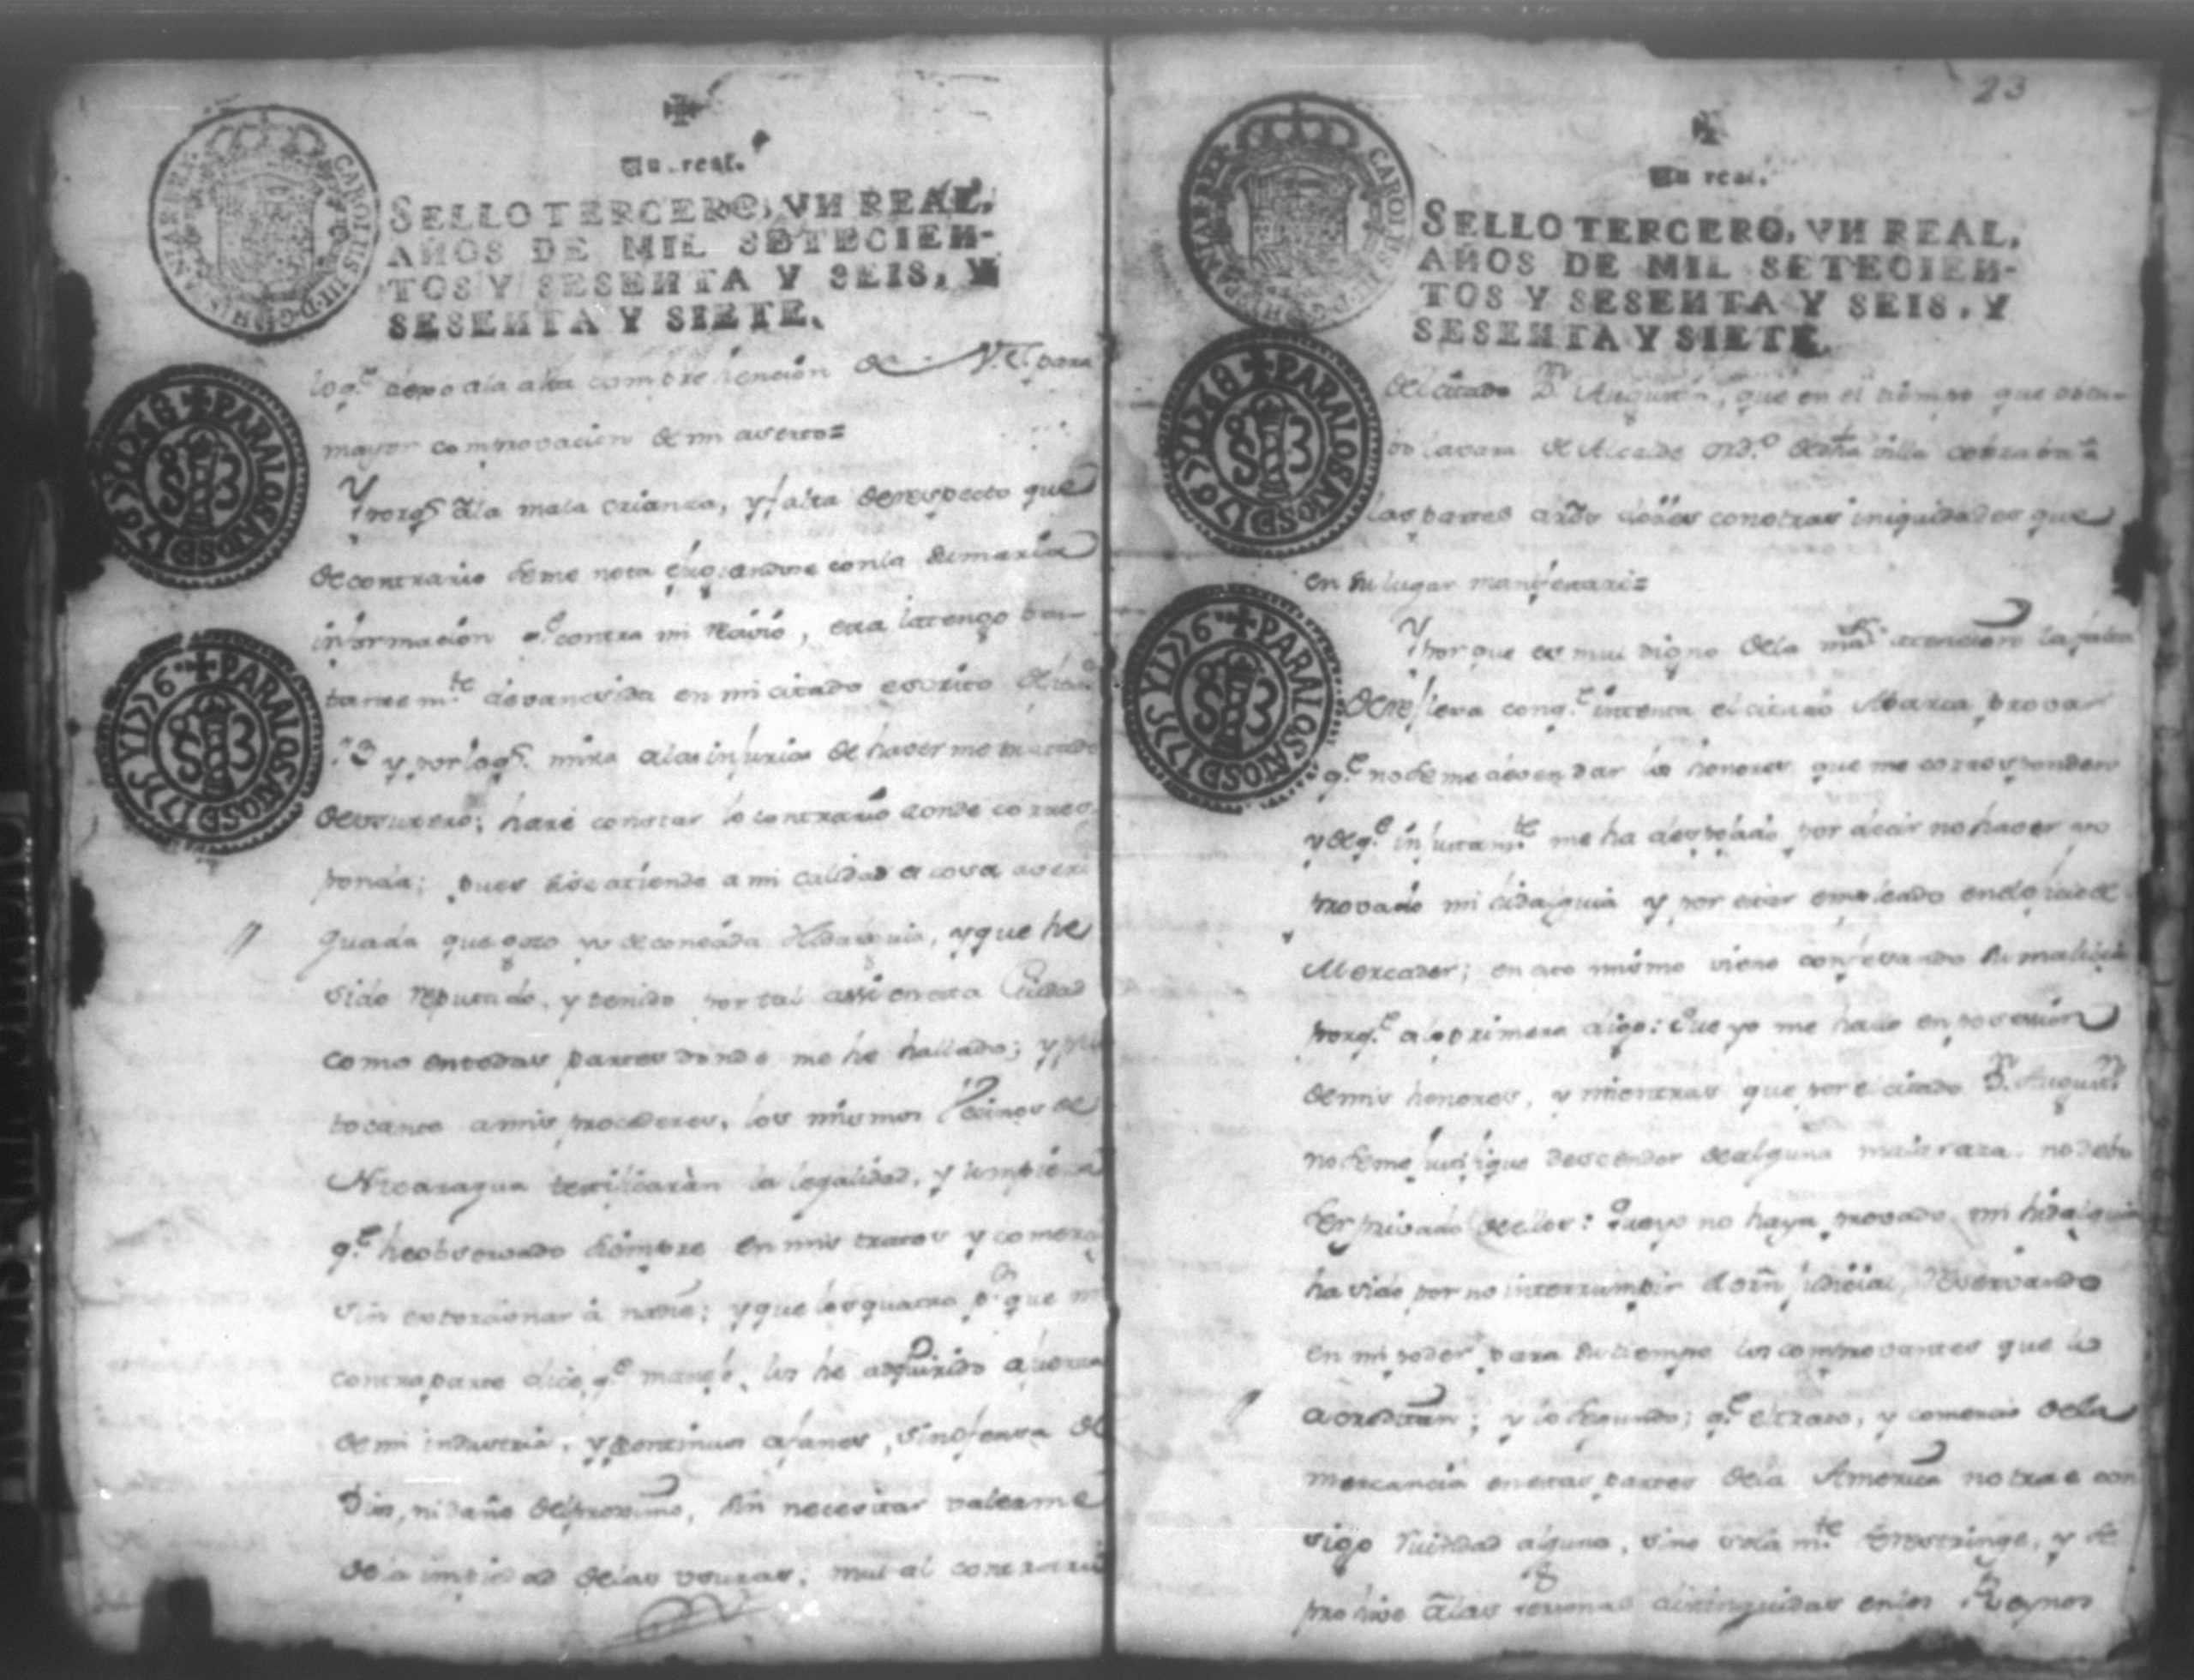 Un real.
SELLO TERCERO, VN REAL,
AÑOS DE MIL SETECIEN-
TOS Y SESENTA Y SEIS, Y
SESENTA Y SIETE.
CAROLUS III D G HISPANIAR REX
PARA LOS AÑOS D 1767 Y 1768
PARA LOS AÑOS D 177 Y 1776
loq.e dexo ala alta comprehencion de V. para
mayor comprovacion de mi aserto=
Y porq.e a la mala crianza, y falta de respecto que
de contrario se me nota con la sumaria
informacion q.e contra mi, esta la tengo bas-
tantem.te desvanesida en mi citado escrito
y por loq.e mira a las injurias de haver me tratado
de usurero; haré constar lo contrario donde corres-
ponda; pues si se atiende a mi calidad es cosa averi
guada que goso yo de conosida Hidalguia, y que he
sido reputado, y tenido por tal assi en esta Ciudad
como en todas partes donde me he hallado; y por
tocante a mis procederes, los mismos Vecinos de
Nicaragua testificaràn la legalidad, y limpiesa
q.e he observado siempre en mis tratos y comerc
sin extorcionar à nadie; y que los quatro p.s que m
contraparte dice q.e manejo, los he adquirido a fuerza
de mi industria, y continuos afanes, sin ofensa de
Dios, ni daño del proximo, sin necesitar valerme
de la impiedad de las usuras; mui al contrario
23
Un real.
SELLO TERCERO, VN REAL,
AÑOS DE MIL SETECIEN-
TOS Y SESENTA Y SEIS, Y
SESENTA Y SIETE.
CAROLUS III D G HISPANIAR REX
PARA LOS AÑOS D 1767 Y 1768
PARA LOS AÑOS D 177 Y 1776
del citado D.n Augustin, que en el tiempo que obtu-
bo la vara de Alcalde ord.o de dha villa cobraba a
las partes con otras iniquidades que
en su lugar manifestaré=
Y porque es mui digno de la mas atencion la falta
de reflexa con q.e intenta el citado Abarca provar
q.e no se me deven dar los honores que me corresponden
y de q.e injustam.te me ha despojado por decir no haver yo
provado mi hidalguia y por estar empleado en el oficio de
Mercader; en esto mismo viene confesando su malicia
porq.e a lo primero digo: Que yo me hallo en posesion
de mis honores, y mientras que por el citado D.n August.n
no se me justifique descender de alguna mala raza, no debo
ser privado de ellos: Que yo no haya provado mi hidalguia
ha sido por no interrumpir el orn judicial, reservando
en mi poder para su tiempo los comprovantes que lo
acreditan; y lo segundo; q.e el trato, y comercio de la
mercancia en estas partes de la America no trae con
sigo ruindad alguna, sino sola m.te se restringe, y se
prohive a las personas distinguidas en los Reynos